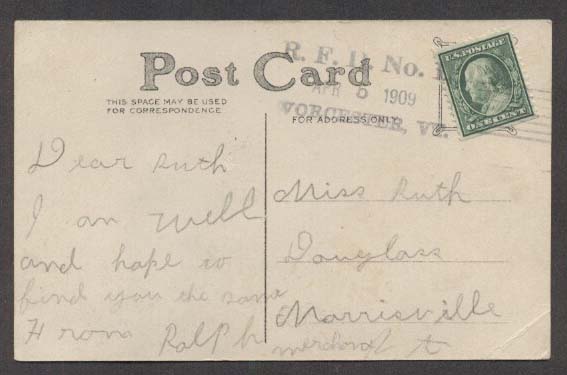 R. F. D. No. 1
APR 5 1909
WORCESTER, VT.
U.S. POSTAGE
ONE CENT
Post Card
THIS SPACE MAY BE USED
FOR CORRESPONDENCE
FOR ADDRESS ONLY
Dear Ruth
I am well
and hope to
find you the same
From Ralph
Miss Ruth
Douglass
Morrisville